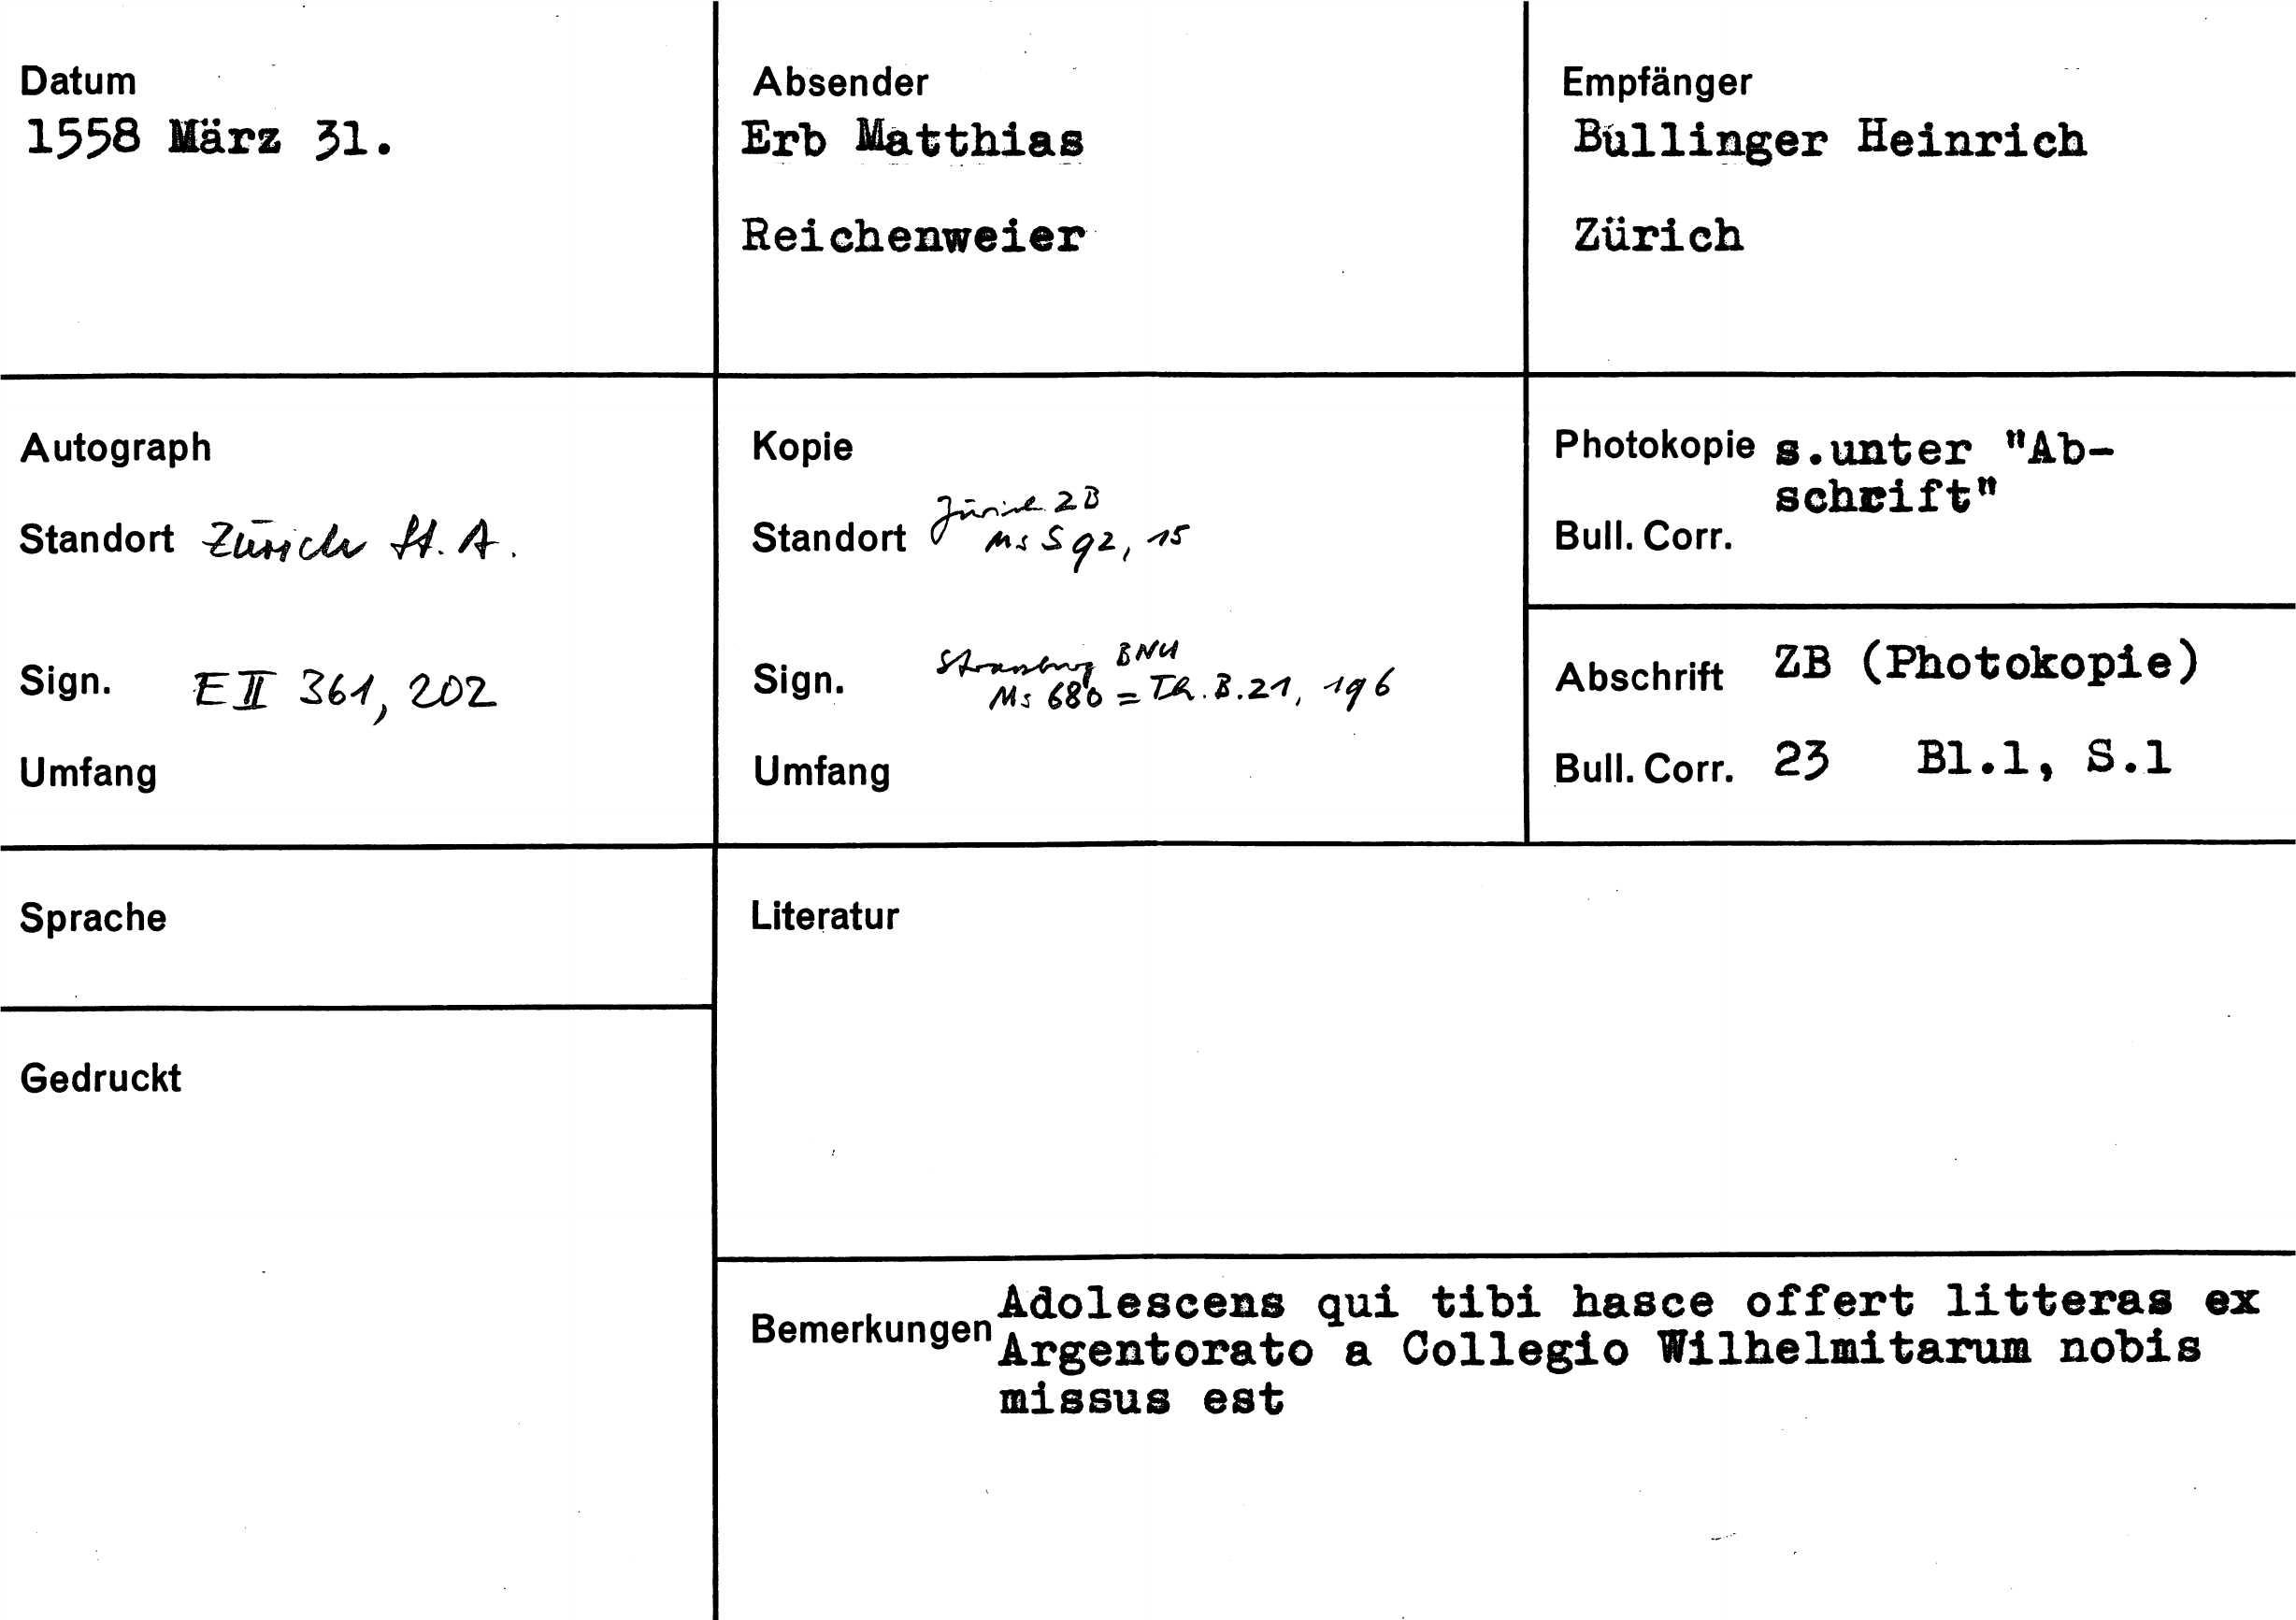 Datum
1558 März 31.
Absender
Erb Matthias
Reichenweier
Empfänger
Bullinger Heinrich
Zürich
Autograph
Standort Zürich St. A.
Sign. E II 361, 202
Umfang
Kopie
Zürich ZB
Standort Ms S 92, 15
Strassburg BNU
Sign. Ms 680 = Th. B. 21, 196
Umfang
Photokopie s.unter "Ab-
schrift"
Bull. Corr.
Abschrift ZB (Photokopie)
Bull. Corr. 23 Bl.1, S.1
Sprache
Gedruckt
Literatur
Bemerkungen Adolescens qui tibi hasce offert litteras ex
Argentorato a Collegio Wilhelmitarum nobis
missus est